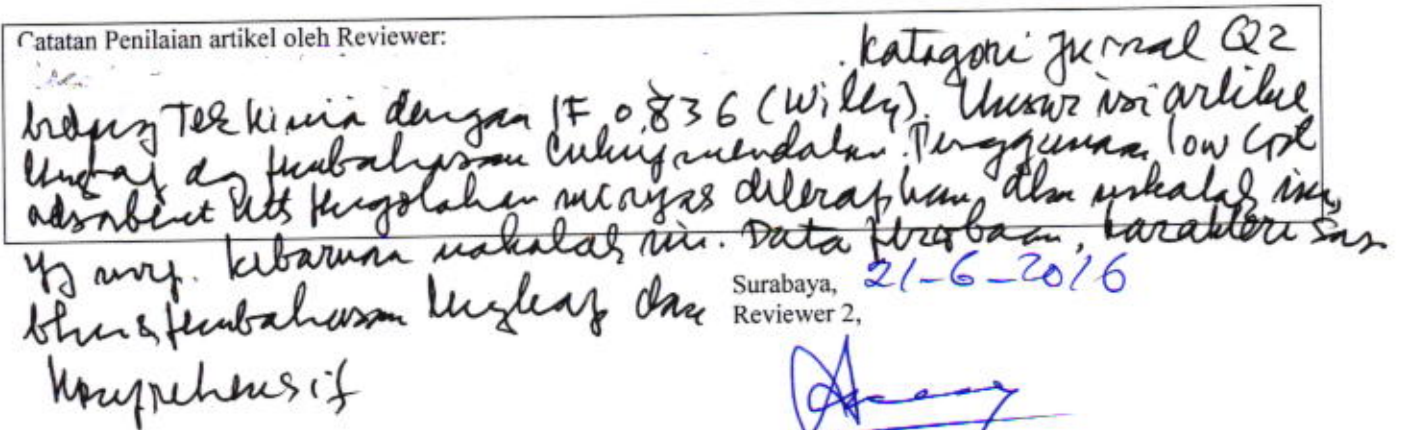 Catatan Penilaian artikel oleh Reviewer:
Katagori Jurnal Q2
bidang Tek Kimia dengan IF 0,836 (Willey). Unsur isi artikel
lengkap dg pembahasan cukup mendalam. Penggunaan low cost
adsorbent utk pengolahan migas diterapkan dlm makalah ini,
yg mrp. kebaruan makalah ini. Data percobaan, karakterisasi
bhn & pembahasan lengkap dan
Komprehensif
Surabaya, 21-6-2016
Reviewer 2,